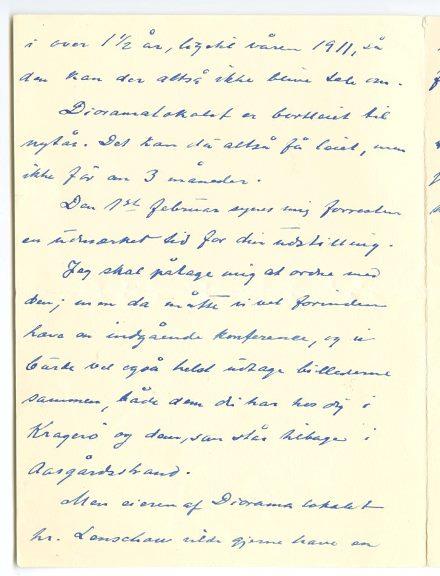 i over 1½ år, ligetil våren 1911, så
den kan der altså ikke blive tale om.
Dioramalokalet er bortleiet til
nytår. Det kan du altså få leiet, men
ikke før om 3 måneder.
Den 1ste februar synes mig forresten
en udmærket tid for din udstilling.
Jeg skal påtage mig at ordne med
den; men da måtte vi vel forinden
have en indgående konference, og vi
burde vel også helst udtage billederne
sammen, både dem du har hos dig i
Kragerø og dem, som står tilbage i
Aasgårdsstrand.
Men eieren af Diorama lokalet
hr. Lonschau vilde gjerne have en